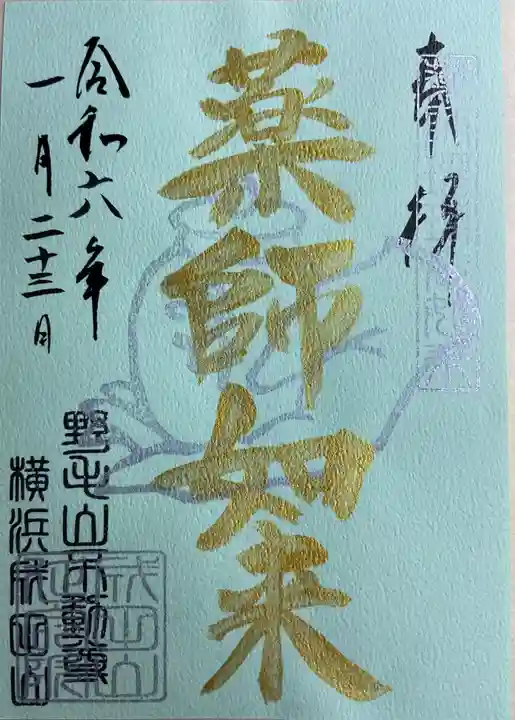 奉拝
薬師如来
令和六年
一月二十三日
野毛山不動尊
横浜成田山